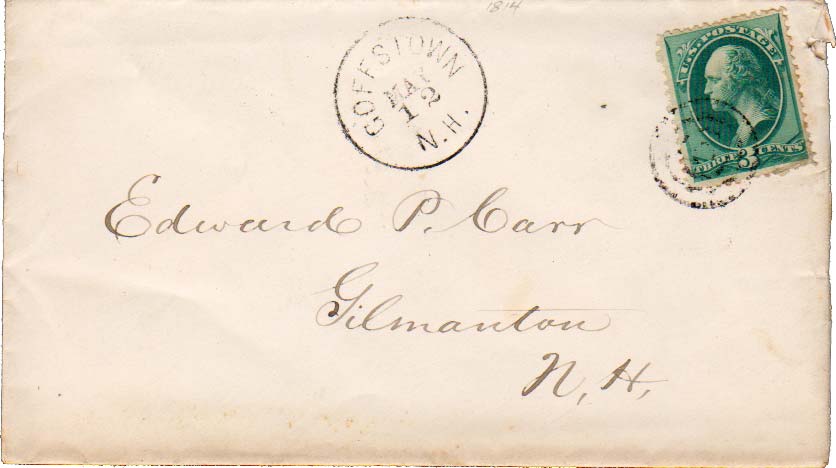 1814
U.S. POSTAGE
THREE 3 CENTS
GOFFSTOWN
MAY
12
N.H.
Edward P. Carr
Gilmanton
N, H,